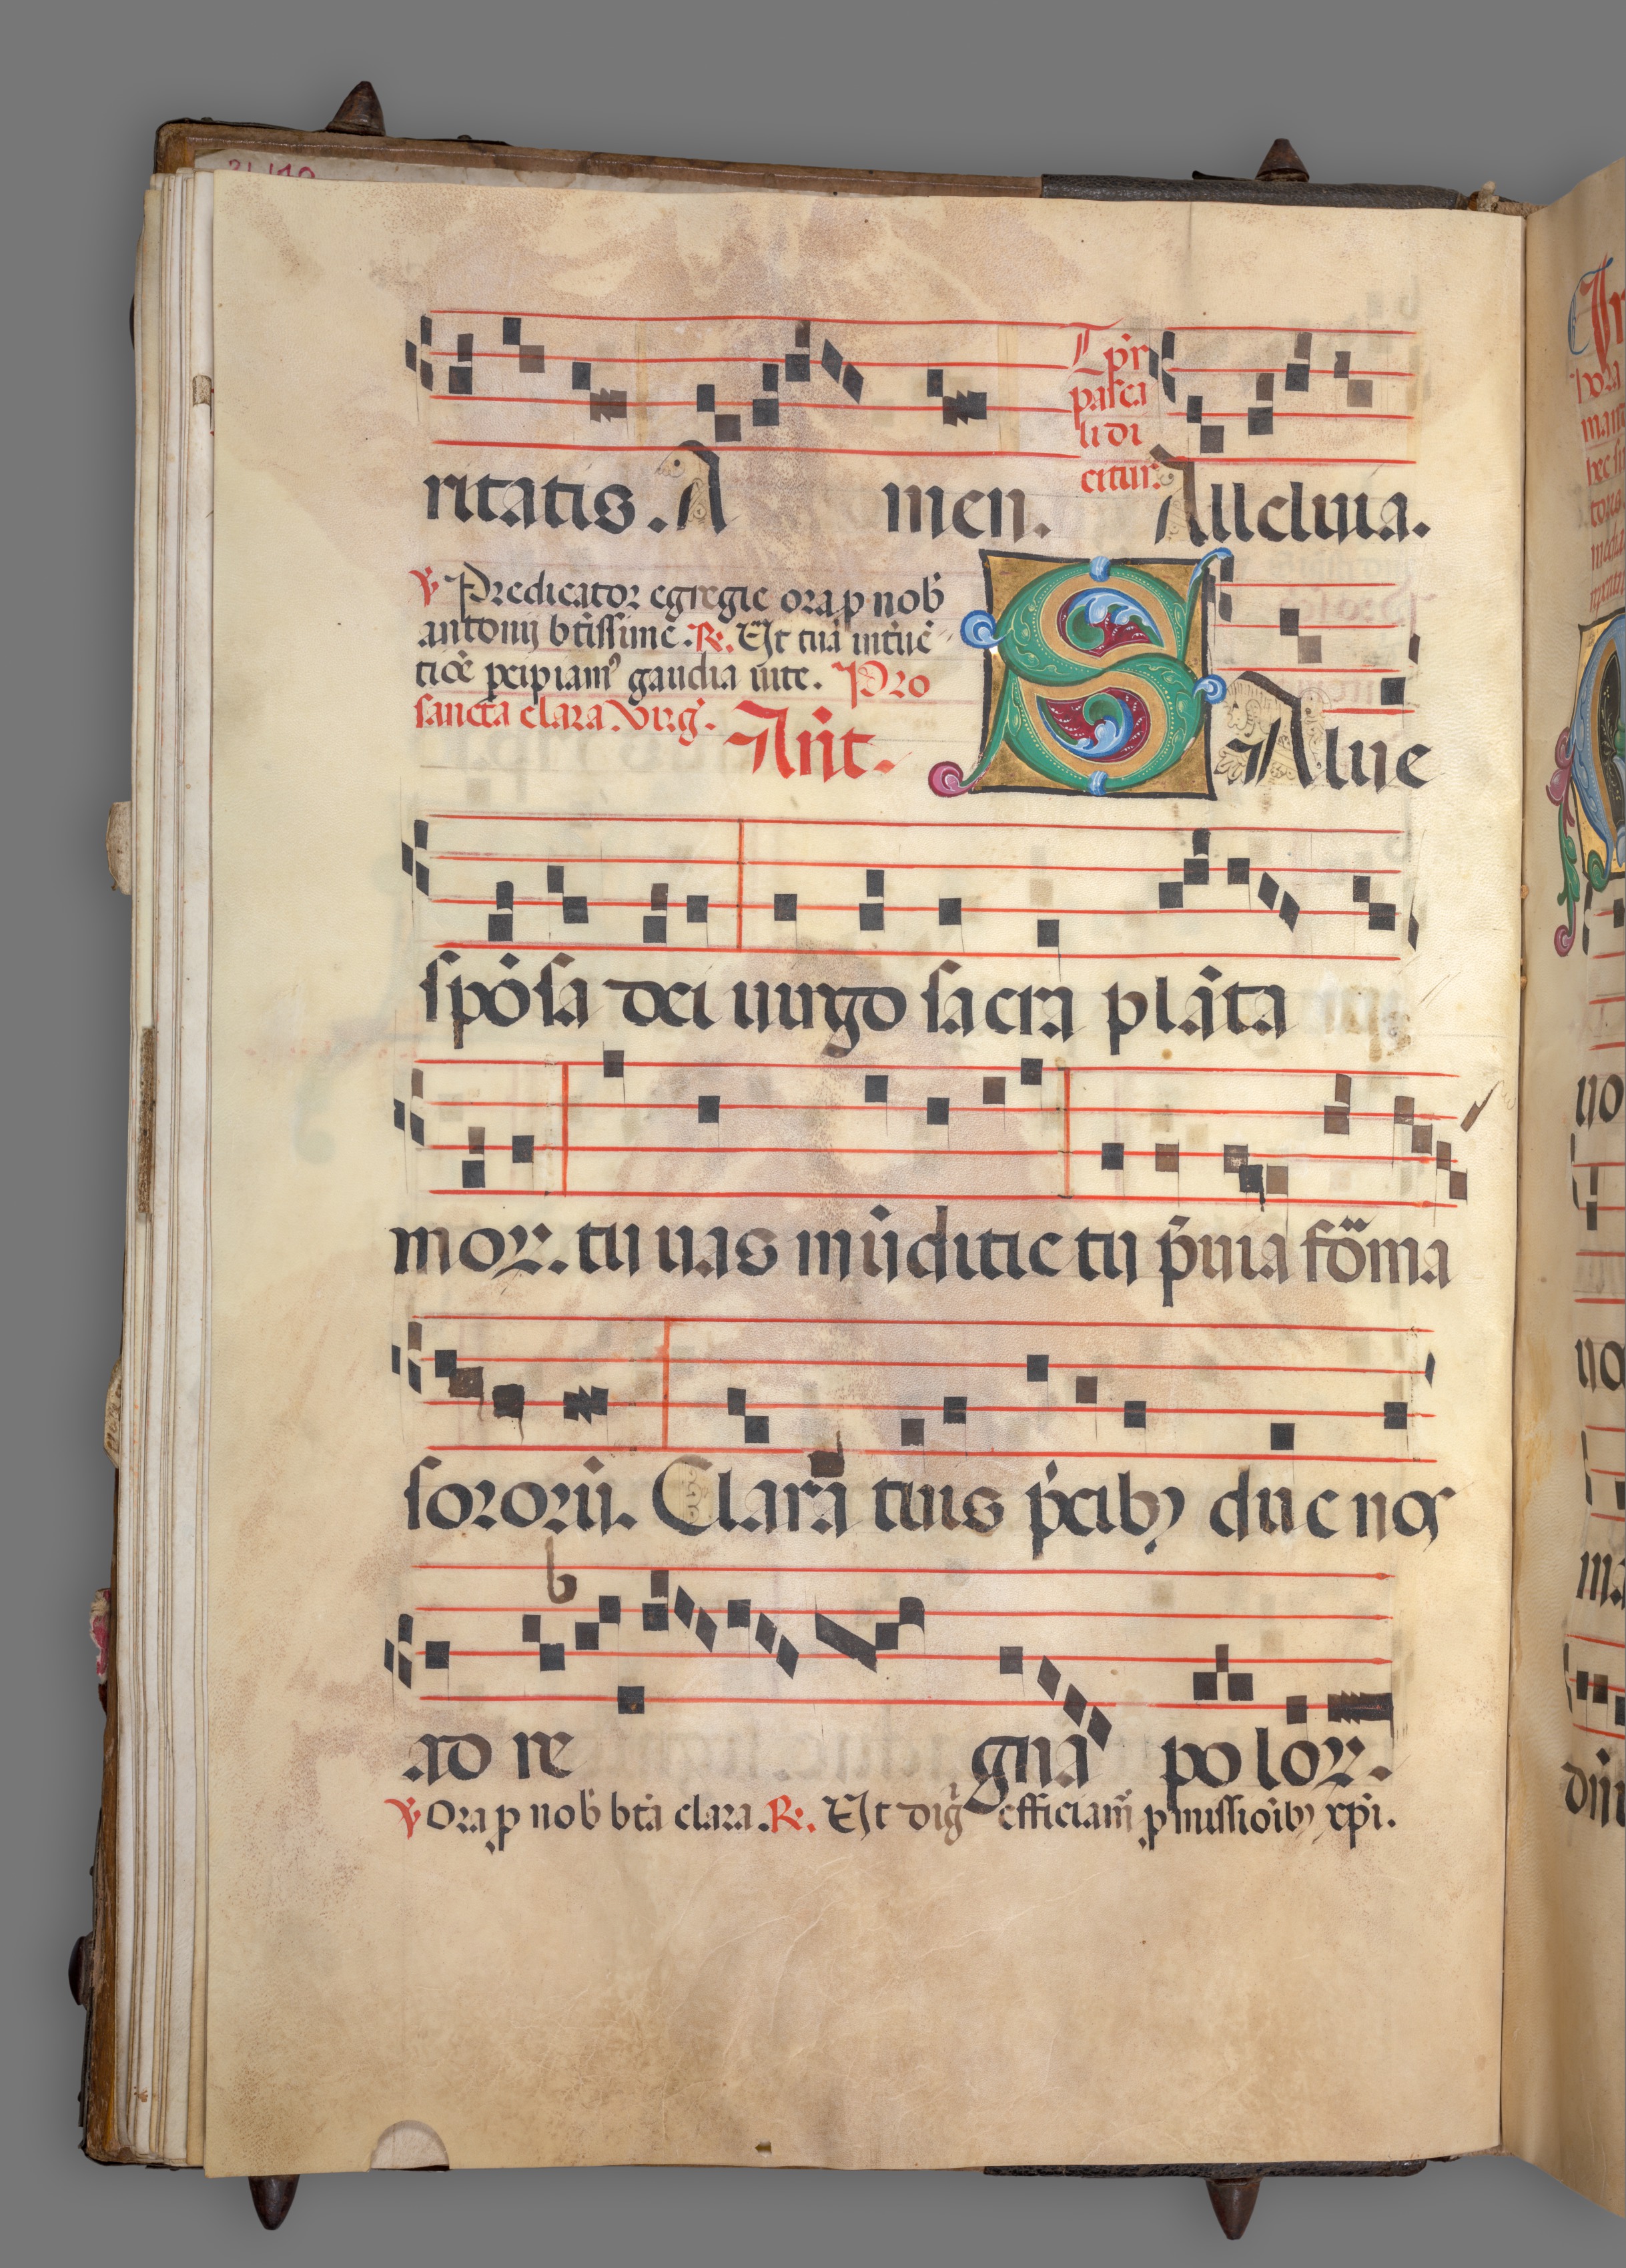 ritatis. A men. Alleluia.
Tp̄r
pasca
li di
citur.
℣ Predicator egregie ora p nob̄
antonij btīssime. ℟. Et tuā intuē
tiōe p̄cipiamꝰ gaudia uite. Pro
sancta clara Virḡ.
Ant.
SAlue
spōsa dei uirgo sacra plāta
moꝝ. tu uas mūditie tu p̄uia fōma
sororū. Clara tuis p̄cibꝫ duc nos
ad re gna poloꝝ.
℣ Ora p nob̄ btā clara. ℟. Et dig̃ efficiam̄ p̱missiōibꝫ xp̄i.